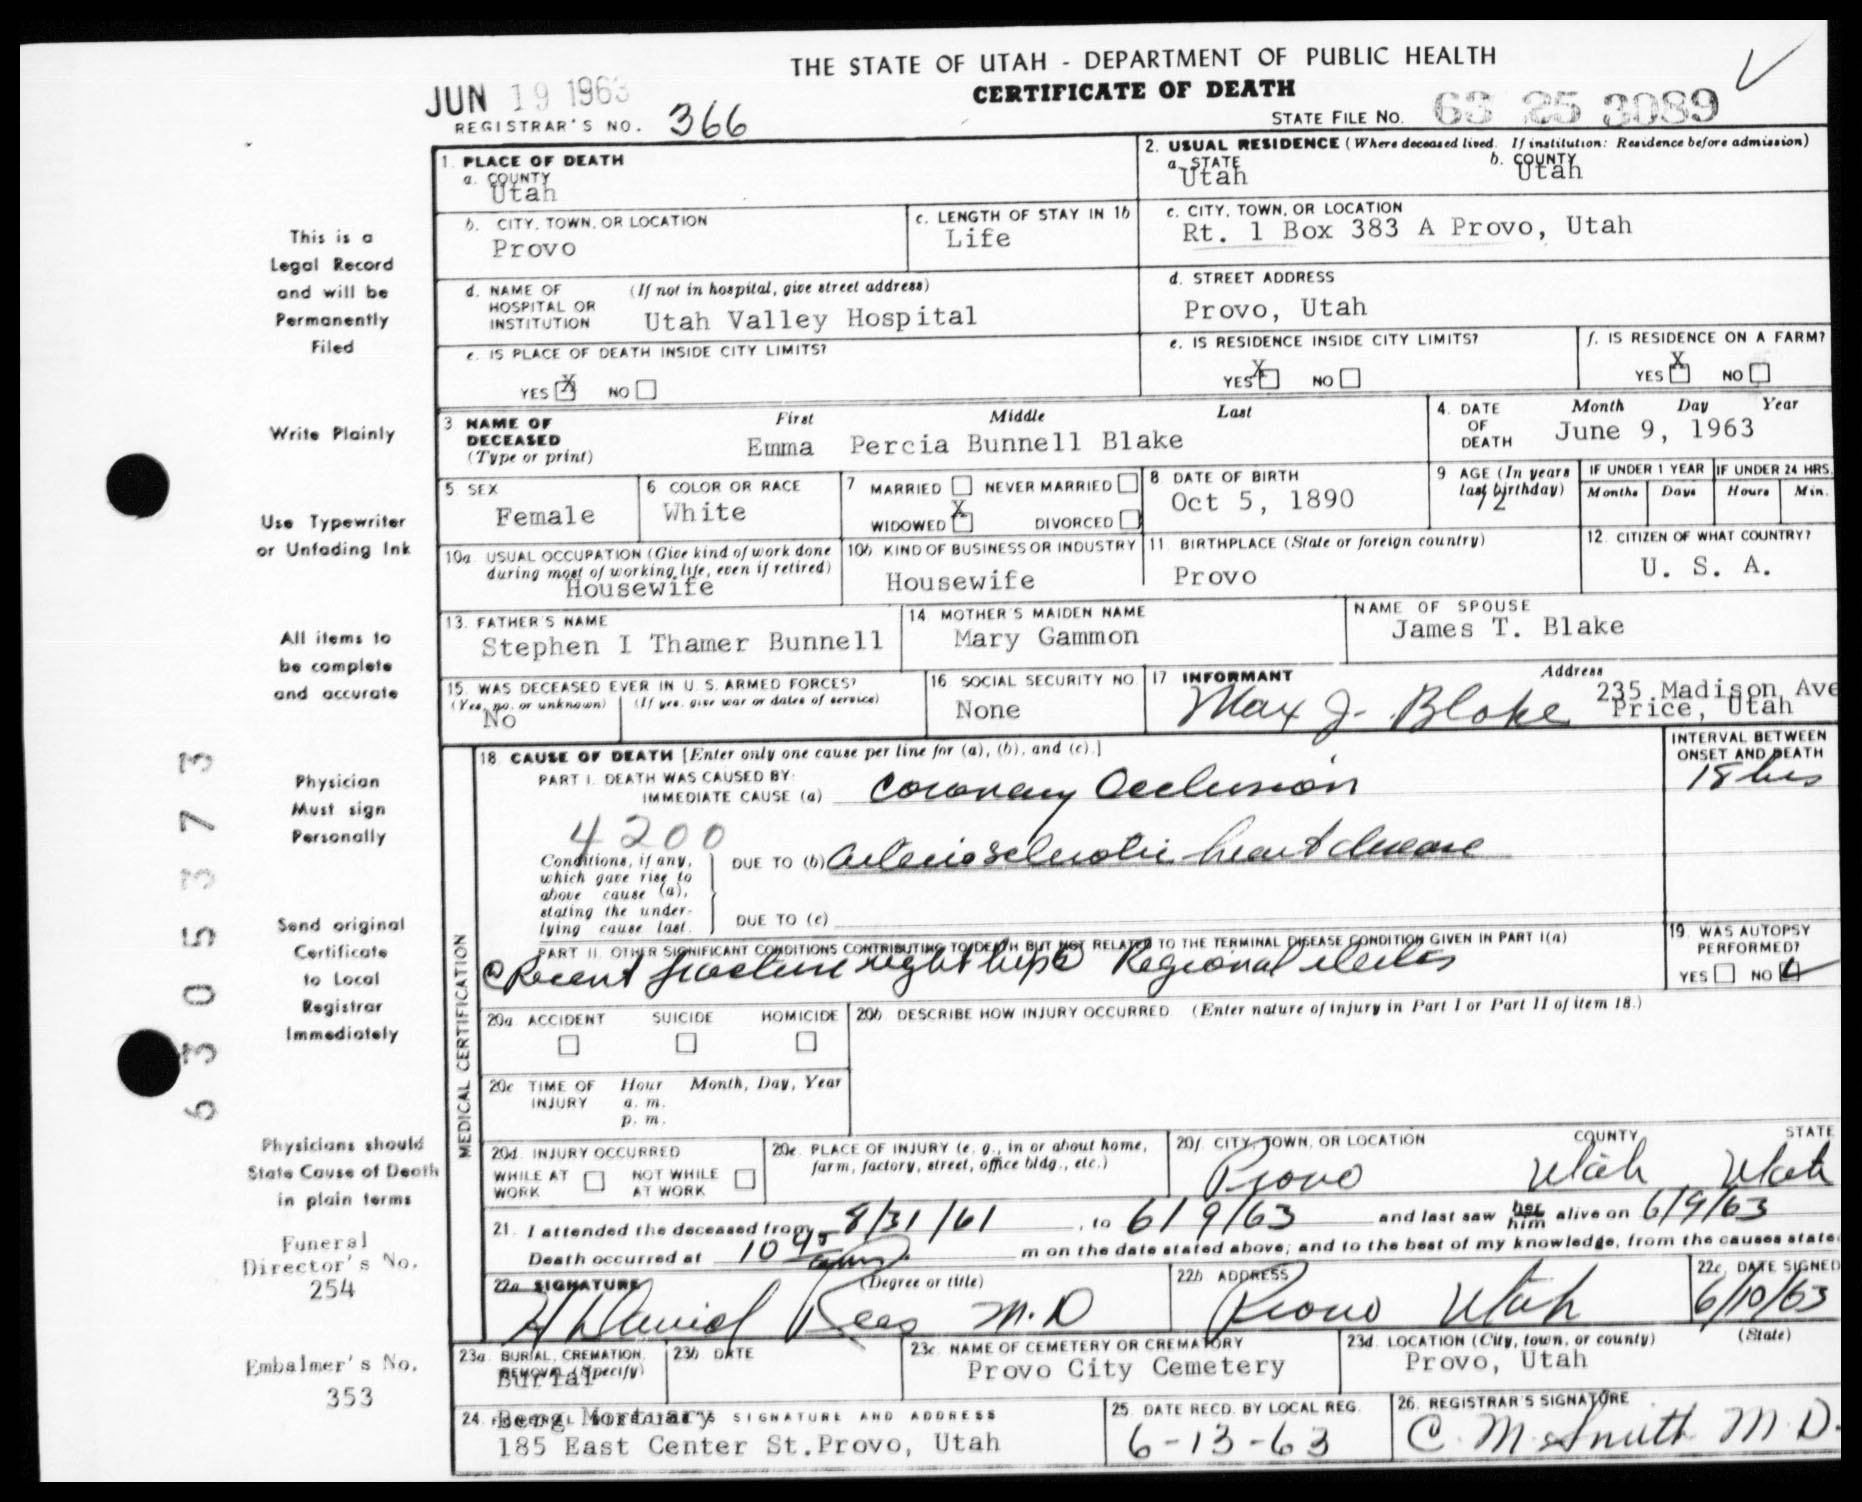 THE STATE OF UTAH - DEPARTMENT OF PUBLIC HEALTH
CERTIFICATE OF DEATH
JUN 19 1963
REGISTRAR'S NO. 366
STATE FILE NO. 63 25 3089
1. PLACE OF DEATH
a. COUNTY
Utah
2. USUAL RESIDENCE (Where deceased lived. If institution: Residence before admission)
a. STATE b. COUNTY
Utah Utah
b. CITY, TOWN, OR LOCATION
Provo
c. LENGTH OF STAY IN 1b
Life
c. CITY, TOWN, OR LOCATION
Rt. 1 Box 383 A Provo, Utah
d. NAME OF (If not in hospital, give street address)
HOSPITAL OR
INSTITUTION Utah Valley Hospital
d. STREET ADDRESS
Provo, Utah
e. IS PLACE OF DEATH INSIDE CITY LIMITS?
YES X NO
e. IS RESIDENCE INSIDE CITY LIMITS?
YES X NO
f. IS RESIDENCE ON A FARM?
YES X NO
3 NAME OF First Middle Last
DECEASED
(Type or print) Emma Percia Bunnell Blake
4. DATE Month Day Year
OF
DEATH June 9, 1963
5 SEX
Female
6 COLOR OR RACE
White
7 MARRIED NEVER MARRIED
WIDOWED X DIVORCED
8 DATE OF BIRTH
Oct 5, 1890
9 AGE (In years
last birthday)
72
IF UNDER 1 YEAR IF UNDER 24 HRS.
Months Days Hours Min.
10a USUAL OCCUPATION (Give kind of work done
during most of working life, even if retired)
Housewife
10b KIND OF BUSINESS OR INDUSTRY
Housewife
11 BIRTHPLACE (State or foreign country)
Provo
12. CITIZEN OF WHAT COUNTRY?
U. S. A.
13. FATHER'S NAME
Stephen I Thamer Bunnell
14 MOTHER'S MAIDEN NAME
Mary Gammon
NAME OF SPOUSE
James T. Blake
15. WAS DECEASED EVER IN U. S. ARMED FORCES?
(Yes, no, or unknown) (If yes, give war or dates of service)
No
16 SOCIAL SECURITY NO.
None
17 INFORMANT Address
Max J. Blake 235 Madison Ave
Price, Utah
18. CAUSE OF DEATH [Enter only one cause per line for (a), (b), and (c).]
PART I. DEATH WAS CAUSED BY:
IMMEDIATE CAUSE (a) Coronary Occlusion
INTERVAL BETWEEN
ONSET AND DEATH
18 hrs
4200
Conditions, if any,
which gave rise to
above cause (a),
stating the under-
lying cause last.
DUE TO (b) Arteriosclerotic heart disease
DUE TO (c)
PART II. OTHER SIGNIFICANT CONDITIONS CONTRIBUTING TO DEATH BUT NOT RELATED TO THE TERMINAL DISEASE CONDITION GIVEN IN PART I(a)
Recent fracture right hip Regional ileitis
19. WAS AUTOPSY
PERFORMED?
YES NO
MEDICAL CERTIFICATION
20a ACCIDENT SUICIDE HOMICIDE
20b. DESCRIBE HOW INJURY OCCURRED (Enter nature of injury in Part I or Part II of item 18.)
20c TIME OF Hour Month, Day, Year
INJURY a. m.
p. m.
20d. INJURY OCCURRED
WHILE AT NOT WHILE
WORK AT WORK
20e. PLACE OF INJURY (e. g., in or about home,
farm, factory, street, office bldg., etc.)
20f. CITY, TOWN, OR LOCATION COUNTY STATE
Provo Utah Utah
21. I attended the deceased from 8/31/61, to 6/9/63 and last saw her him alive on 6/9/63
Death occurred at 10 45 m on the date stated above; and to the best of my knowledge, from the causes state
22a SIGNATURE (Degree or title)
H David Rees M.D
22b ADDRESS
Provo Utah
22c. DATE SIGNED
6/10/63
23a. BURIAL, CREMATION,
REMOVAL (Specify)
Burial
23b. DATE
23c. NAME OF CEMETERY OR CREMATORY
Provo City Cemetery
23d. LOCATION (City, town, or county) (State)
Provo, Utah
24. FUNERAL DIRECTOR'S SIGNATURE AND ADDRESS
Berg Mortuary
185 East Center St.Provo, Utah
25 DATE RECD. BY LOCAL REG.
6-13-63
26. REGISTRAR'S SIGNATURE
C. M. Smith M.D.
This is a
Legal Record
and will be
Permanently
Filed
Write Plainly
Use Typewriter
or Unfading Ink
All items to
be complete
and accurate
Physician
Must sign
Personally
Send original
Certificate
to Local
Registrar
Immediately
Physicians should
State Cause of Death
in plain terms
Funeral
Director's No.
254
Embalmer's No.
353
6 3 0 5 3 7 3